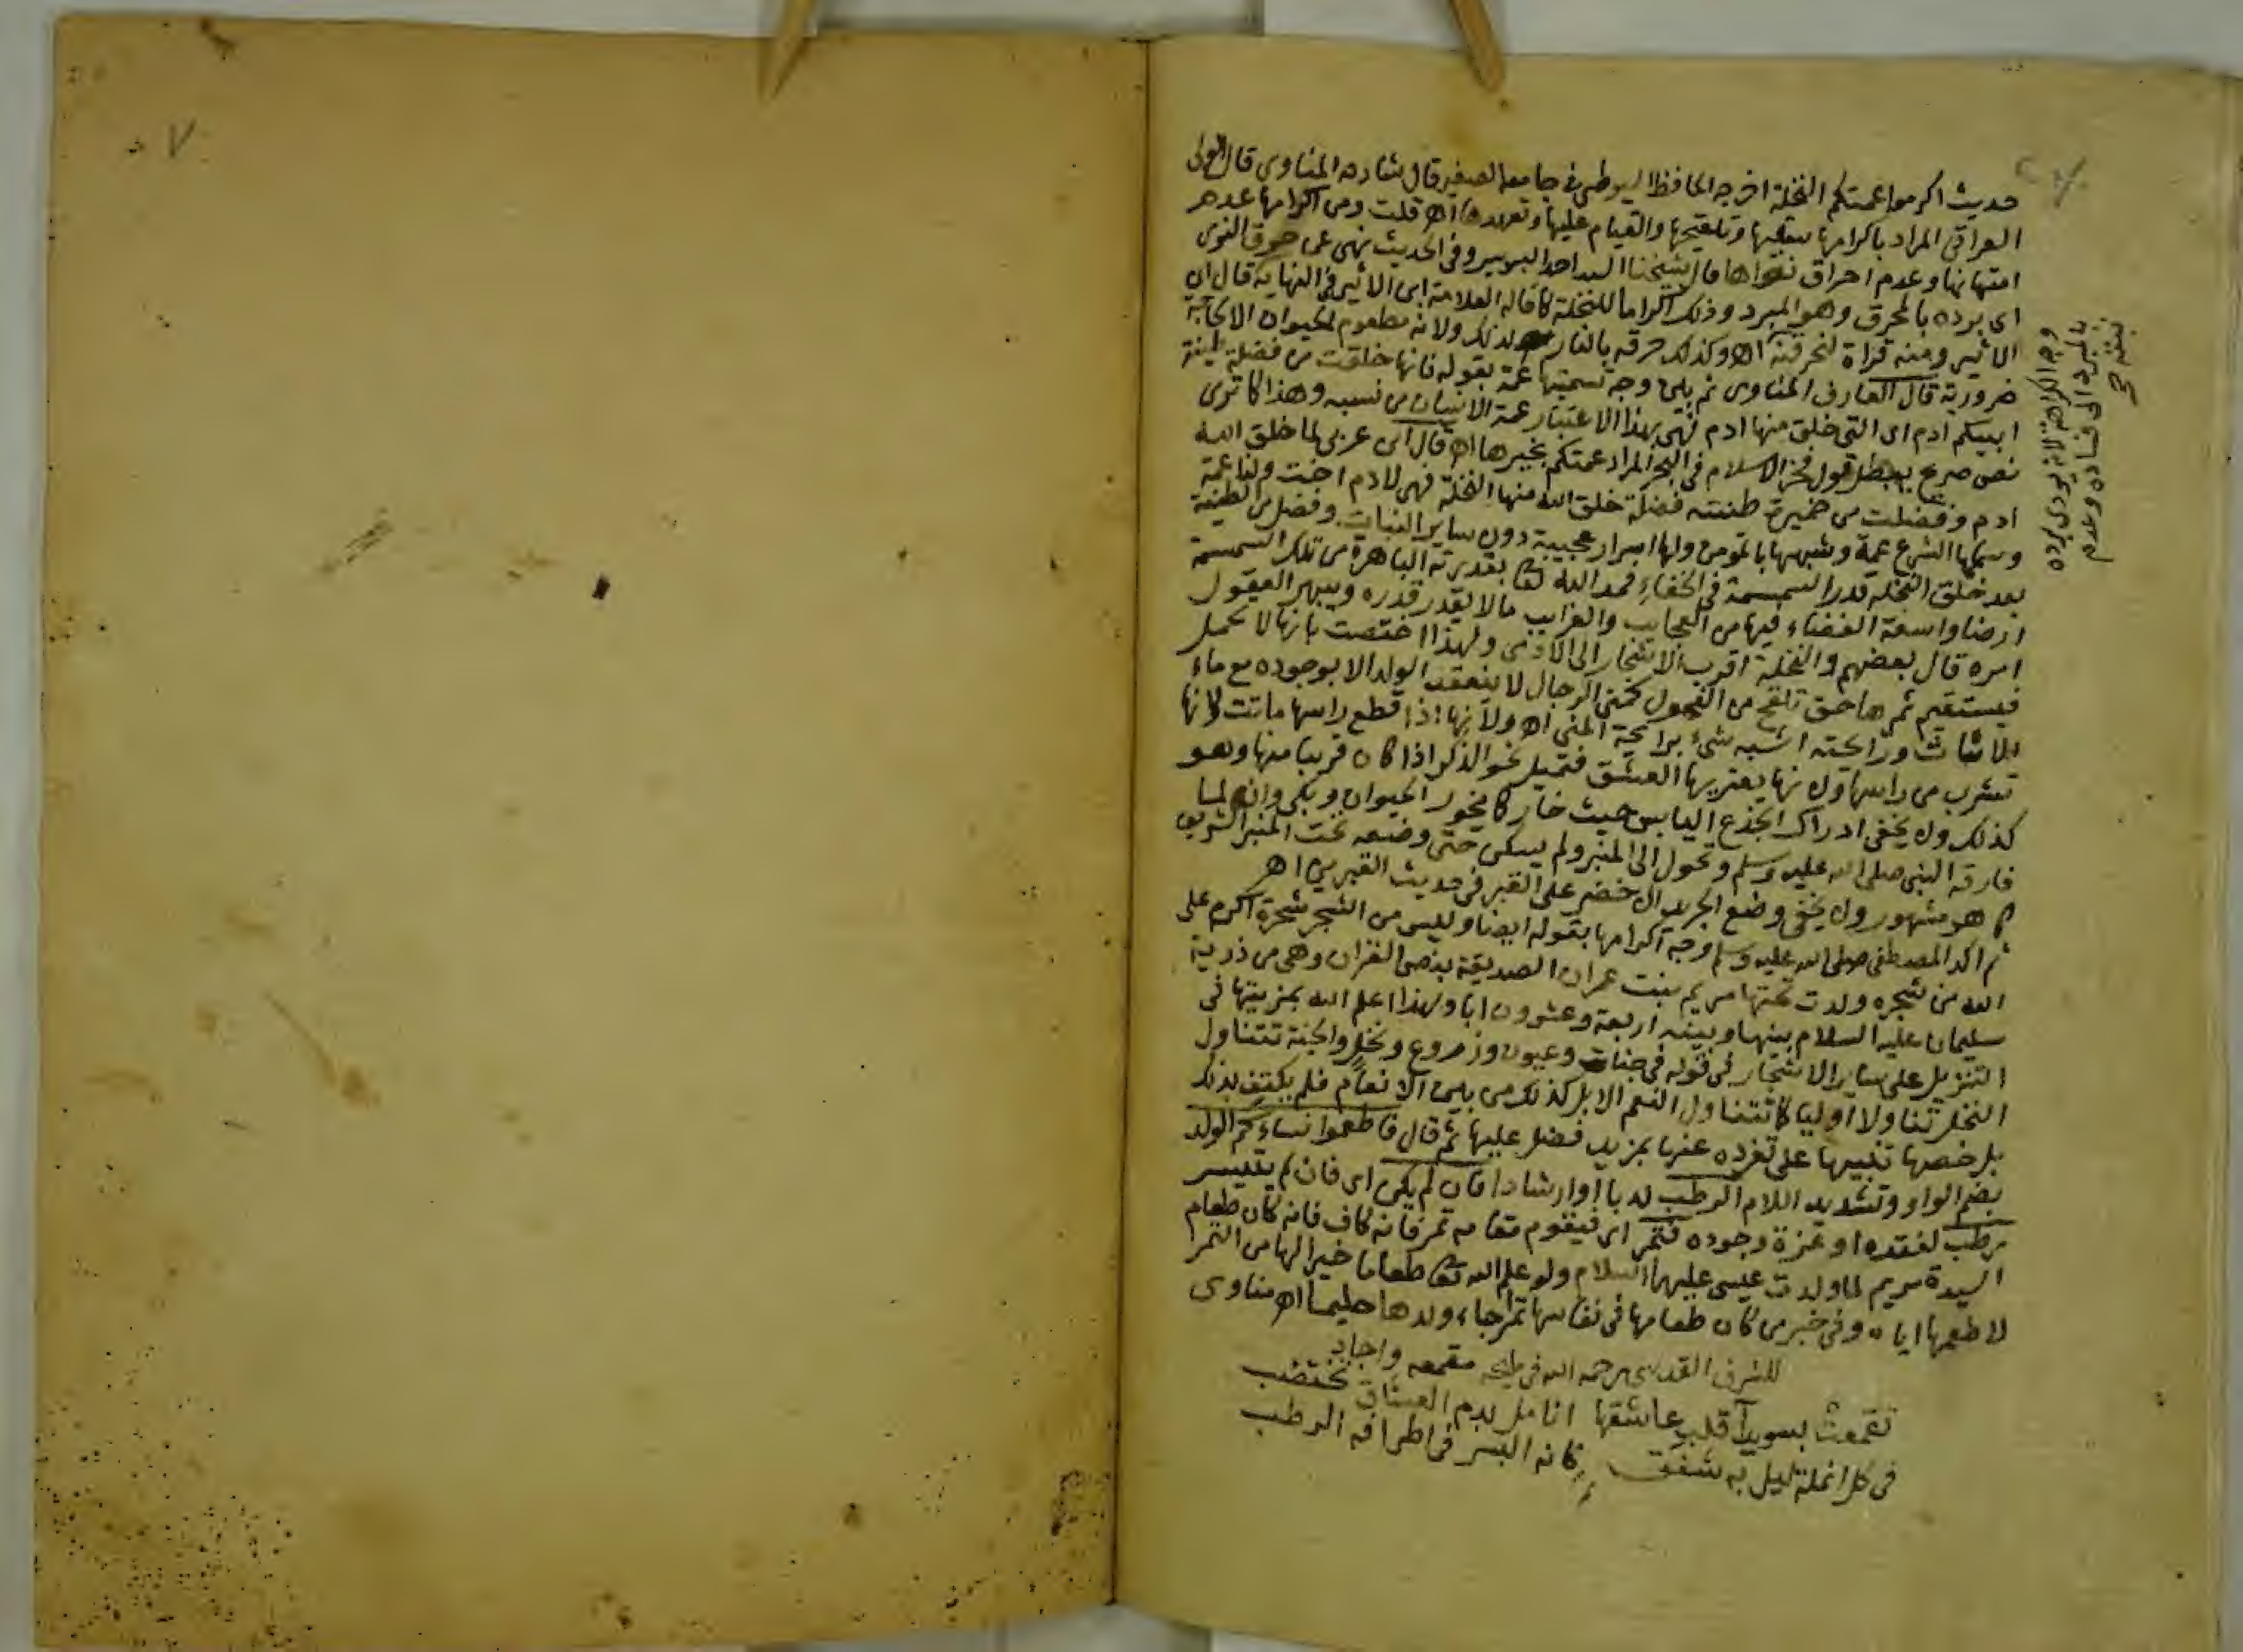 حديث اكرموا عمتكم النخلة اخرجه الحافظ السيوطي في جامعه الصغير قال شارحه المناوي قال الولي
العراقي المراد باكرامها سقيها وتلقيحها والقيام عليها وتعهدها اه قلت ومن اكرامها عدم
امتهانها وعدم احراق نواها قال شيخنا السيد احمد وفي الحديث نهى عن حرق النوى
اي برده بالمحرق وهو المبرد وذلك اكراما للنخلة كما قاله العلامة ابن الاثير في النهاية قال ابن
الاثير ومنه قراة لنحرقنه اه وكذلك حرقه بالنار لذلك ولانه مطعوم لحيوان
ضرورية قال العارف المناوي ثم بين وجه تسميتها عمة بقوله فانها خلقت من فضلة طينة
ابيكم ادم اي التي خلق منها ادم فهي بهذا الاعتبار عمة الانسان من نسبه وهذا كما ترى
نص صريح يبطل قول فخر الاسلام في البحر المراد عمتكم بخيرها اه قال ابن عربي لما خلق الله
ادم وفضلت من خميرة طينته فضلة خلق الله منها النخلة فهي لادم اخت ولنا عمة
وسماها الشرع عمة وشبهها بالمومن ولها اسرار عجيبة دون ساير النبات وفضل من الطينة
بعد خلق النخلة قدر السمسمة في الخفاء فمد الله تعالى بقدرته الباهرة من تلك السمسمة
ارضا واسعة الفضاء فيها من العجايب والغرايب ما لا يقدر قدره ويبهر العقول
امره قال بعضهم والنخلة اقرب الاشجار الى الادمي ولهذا اختصت بانها لا تحمل
فيستقيم ثمرها حتى تلقح من الفحول كمني الرجال لا ينعقد الولد الا بوجوده مع ماء
الاناث ورائحته اشبه شيء برائحة المني اه ولانها اذا قطع راسها ماتت ولانها
تشرب من راسها ولانها يعتريها العشق فتميل نحو الذكر اذا كان قريبا منها وهو
كذلك ولا يخفى ادراك الجذع اليابس حيث خار كما يخور الحيوان وبكى وان لما
فارقه النبي صلى الله عليه وسلم وتحول الى المنبر ولم يسكن حتى وضعه تحت المنبر الشريف
كما هو مشهور ولا يخفى وضع الجريد الاخضر على القبر في حديث القبرين اه
ثم اكد المصطفى صلى الله عليه وسلم وجه اكرامها بقوله ايضا وليس من الشجر شجرة اكرم على
الله من شجره ولدت تحتها مريم بنت عمران الصديقة بنص القران وهي من ذرية
سليمان عليه السلام بينها وبينه اربعة وعشرون ابا ولهذا اعلم الله بمزيتها في
التنزيل على ساير الاشجار في قوله في جنات وعيون وزروع ونخل والجنة تتناول
النخل تناولا اوليا كما تتناول النعم الابل كذلك من بين الانعام فلم يكتف بذلك
بل خصها تنبيها على تفرده عنها بمزيد فضل عليها ثم قال فاطعموا نساءكم الولد
بضم الواو وتشديد اللام الرطب ندبا او ارشادا فان لم يكن اي فان لم يتيسر
رطب لفقده او عزة وجوده فتمر اي فيقوم مقامه تمر فانه كاف فانه كان طعام
السيدة مريم لما ولدت عيسى عليهما السلام ولو علم الله تعالى طعاما خيرا لها من التمر
لاطعمها اياه وفي خبر من كان طعامها في نفاسها تمرا جاء ولدها حليما اه مناوي
للشرف القدسي رحمه الله في مليحه مقمعه واجاد
تقمعت بسويدا قلب عاشقها انامل بدم العشاق تختضب
في كل انملة ليل به شفق كانه البسر في اطرافه الرطب
وجه الكراهة لانه يودي برده
بالمبرد الى فساده وعدم